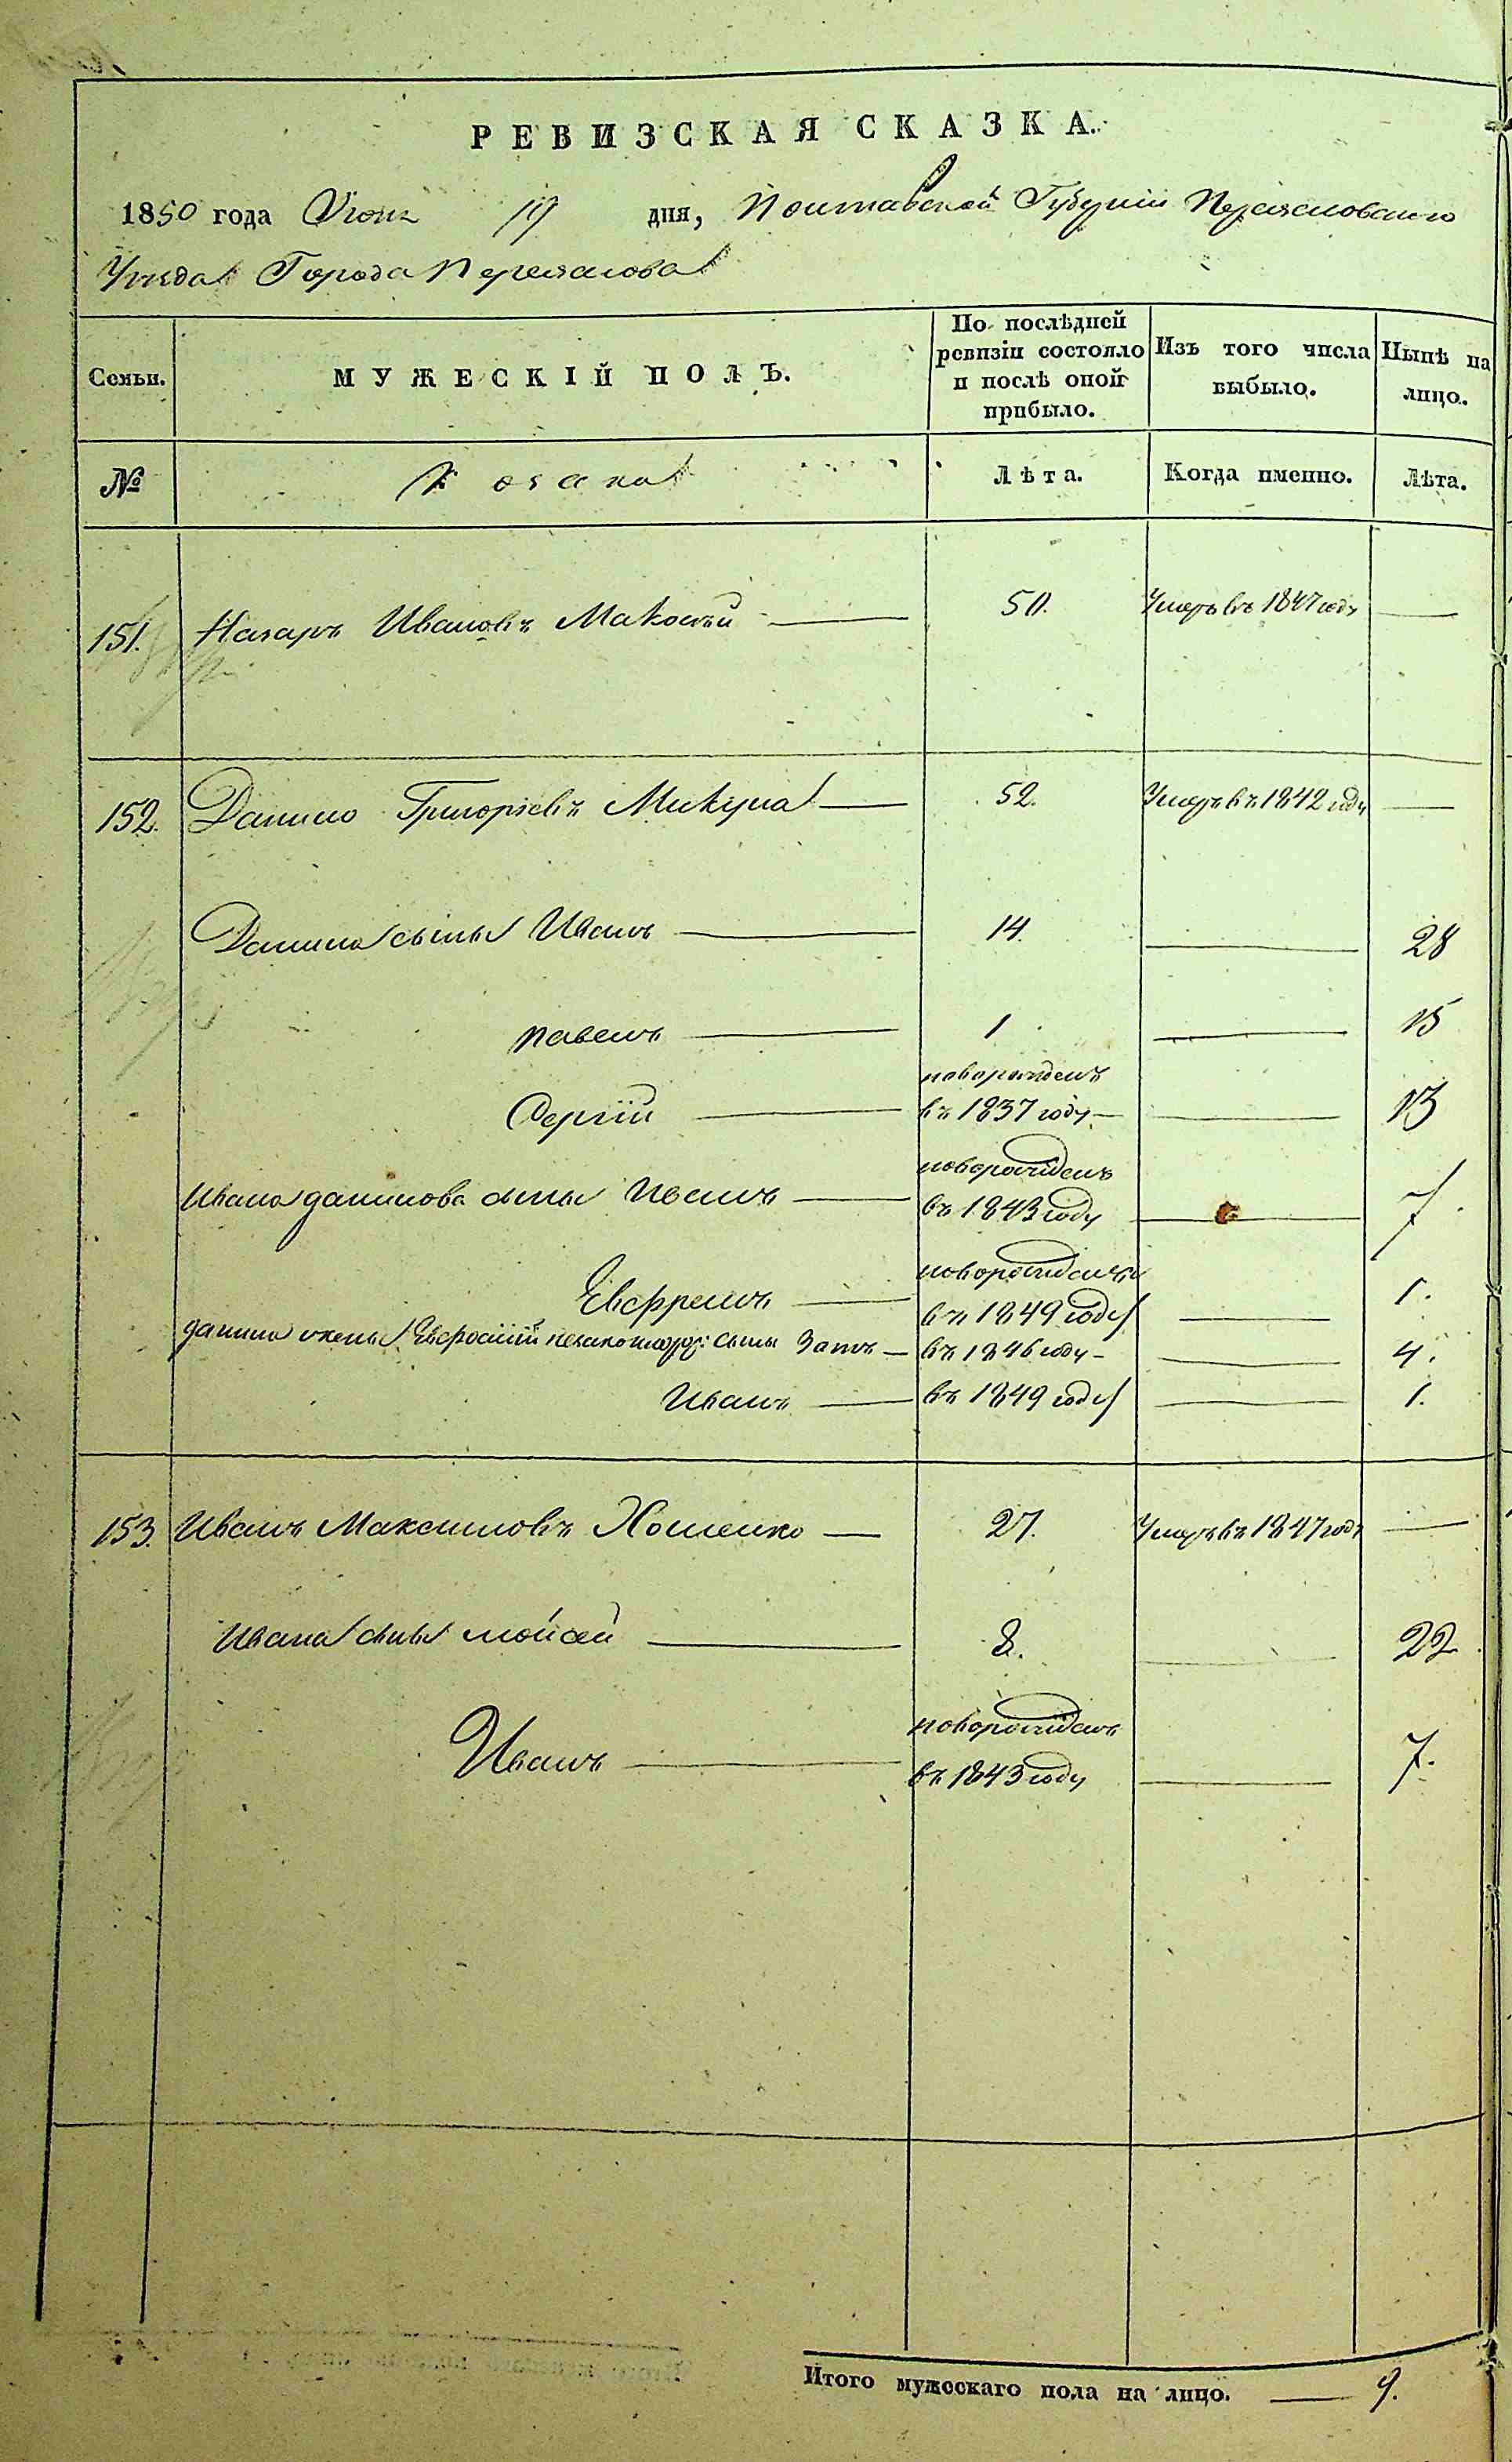 РЕВИЗСКАЯ СКАЗКА.
1850 года Июня 19 дня, Полтавской Губерніи Переяславскаго
Уезда Города Переяслова
Семьи.
МУЖЕСКІЙ ПОЛЪ.
По послѣдней
ревизіи состояло
и послѣ оной
прибыло.
Изъ того числа
выбыло.
Нынѣ на
лицо.
№
Козака
Лѣта.
Когда именно.
Лѣта.
151. Назаръ Ивановъ 50. Умеръ въ 1847 году
152. Данило Григоріевъ Микула 52. Умеръ въ 1842 году
Данила сыны Иванъ 14. 28
Павелъ 1 15
новорожденъ
Сергій въ 1837 году 13
новорожденъ
Ивана данилова сыны Иванъ 7.
въ 1843 году
новорожденъ
Евфремъ 1.
въ 1849 году
данила жены сыны въ 1846 году 4.
Иванъ въ 1849 году 1.
153. Иванъ Максимовъ Хоменко 27. Умеръ въ 1847 году
Ивана сыны мойсей 8. 22
новорожденъ
Иванъ 7.
въ 1843 году
Итого мужескаго пола на лицо. 9.